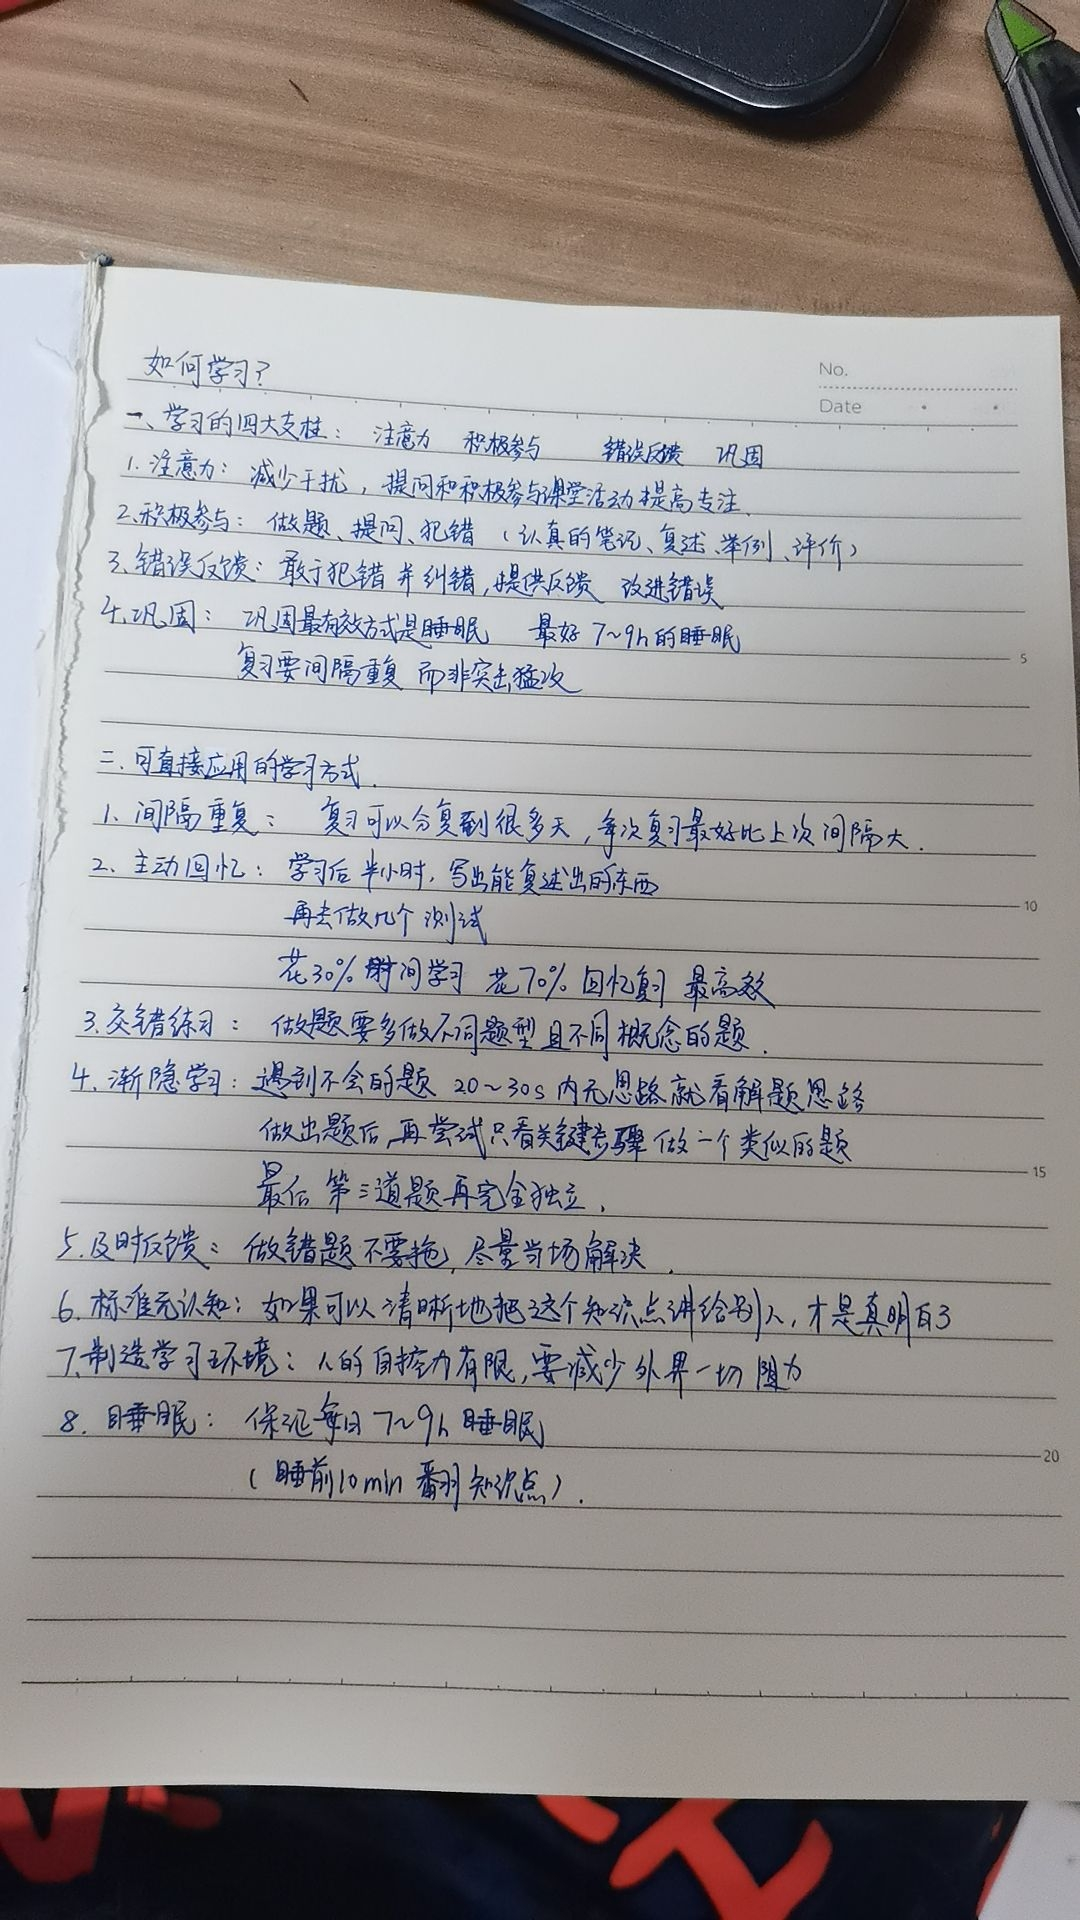 如何学习?
No.
Date
一、学习的四大支柱: 注意力 积极参与 错误反馈 巩固
1. 注意力: 减少干扰, 提问和积极参与课堂活动提高专注.
2. 积极参与: 做题、提问、犯错 (认真的笔记、复述、举例、评价)
3. 错误反馈: 敢于犯错并纠错,提供反馈 改进错误
4. 巩固: 巩固最有效方式是睡眠 最好 7~9h的睡眠
5
复习要间隔重复 而非突击猛攻
二. 可直接应用的学习方式.
1. 间隔重复: 复习可以分复到很多天, 每次复习最好比上次间隔大.
2. 主动回忆: 学习后半小时, 写出能复述出的东西
10
再去做几个测试
花30%时间学习 花70%回忆复习 最高效
3. 交错练习: 做题要多做不同题型且不同概念的题.
4. 渐隐学习: 遇到不会的题 20~30s内无思路就看解题思路
做出题后,再尝试只看关键步骤做一个类似的题
15
最后 第三道题再完全独立.
5. 及时反馈: 做错题不要拖, 尽量当场解决.
6. 标准元认知: 如果可以清晰地把这个知识点讲给别人, 才是真明白了
7. 制造学习环境: 人的自控力有限, 要减少外界一切阻力
8. 睡眠: 保证每日 7~9h 睡眠
20
(睡前10min 翻翻知识点).